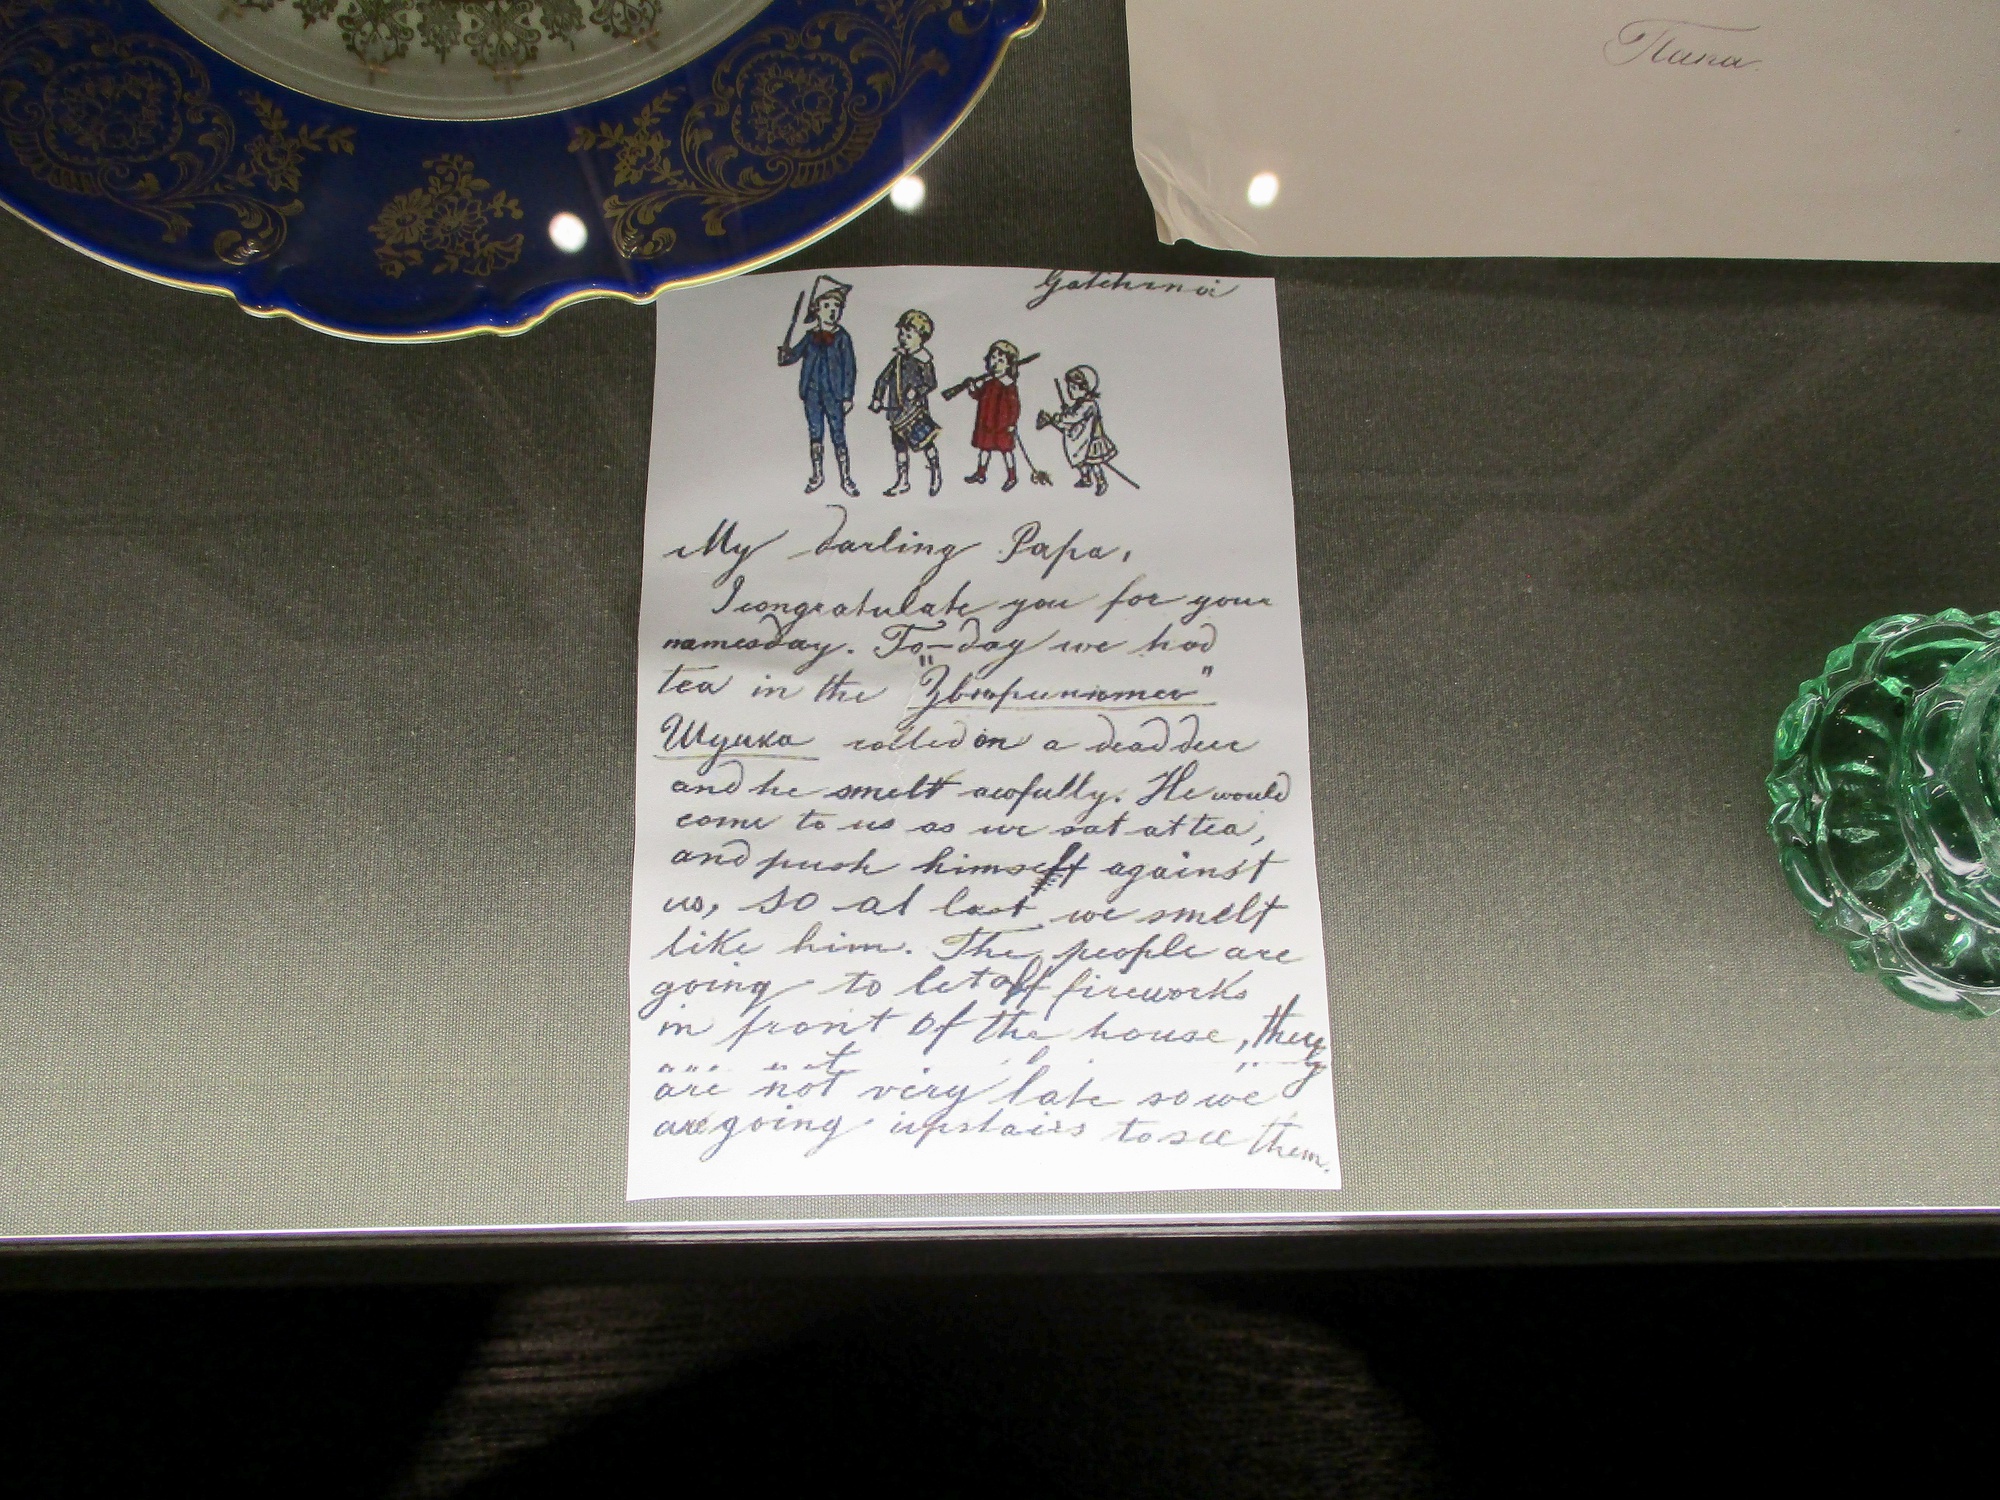 Папа.
My darling Papa,
I congratulate you for your
namesday. To-day we had
tea in the "
Щука rolled on a dead deer
and he smelt awfully. He would
come to us as we sat at tea,
and push himself against
us, so at last we smelt
like him. The people are
going to let off fireworks
in front of the house, they
are not very late so we
are going upstairs to see them.